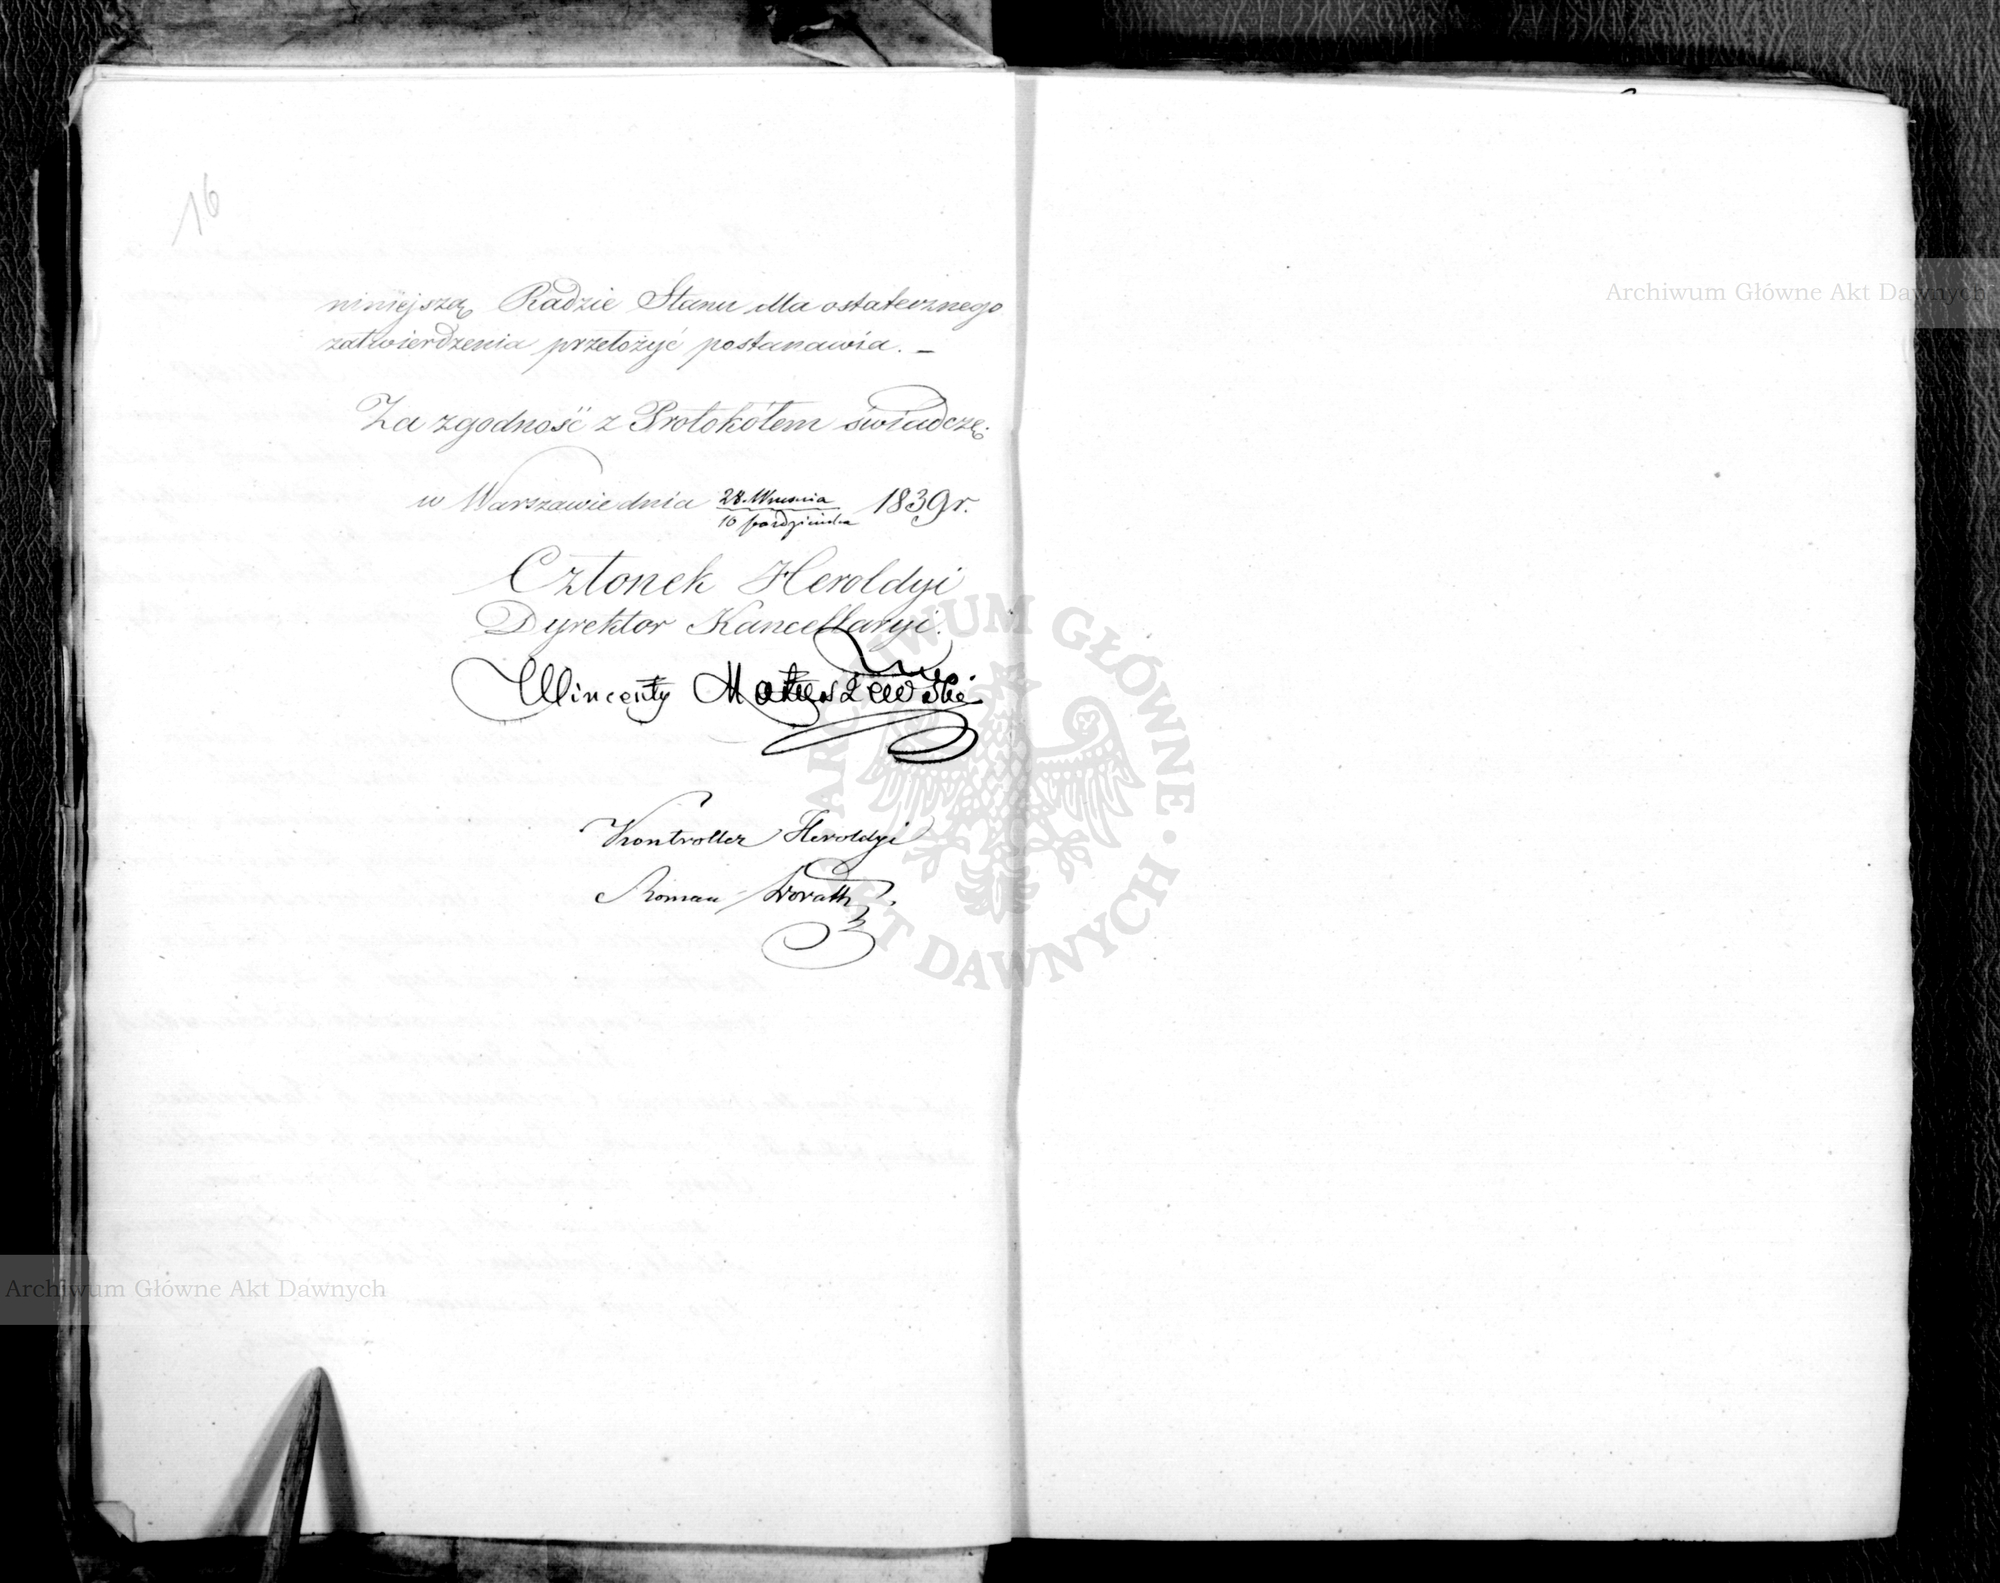 16
niniejszą Radzie Stanu dla ostatecznego
zatwierdzenia przełożyć postanawia. _
Za zgodność z Protokółem świadczę.
w Warszawie dnia 28 Września / 10 Października 1839 r.
Członek Heroldyi
Dyrektor Kancellaryi.
Wincenty Matuszewski
Kontroller Heroldyi
Roman
Archiwum Główne Akt Dawnych
Archiwum Główne Akt Dawnych
ARCHIWUM GŁÓWNE AKT DAWNYCH